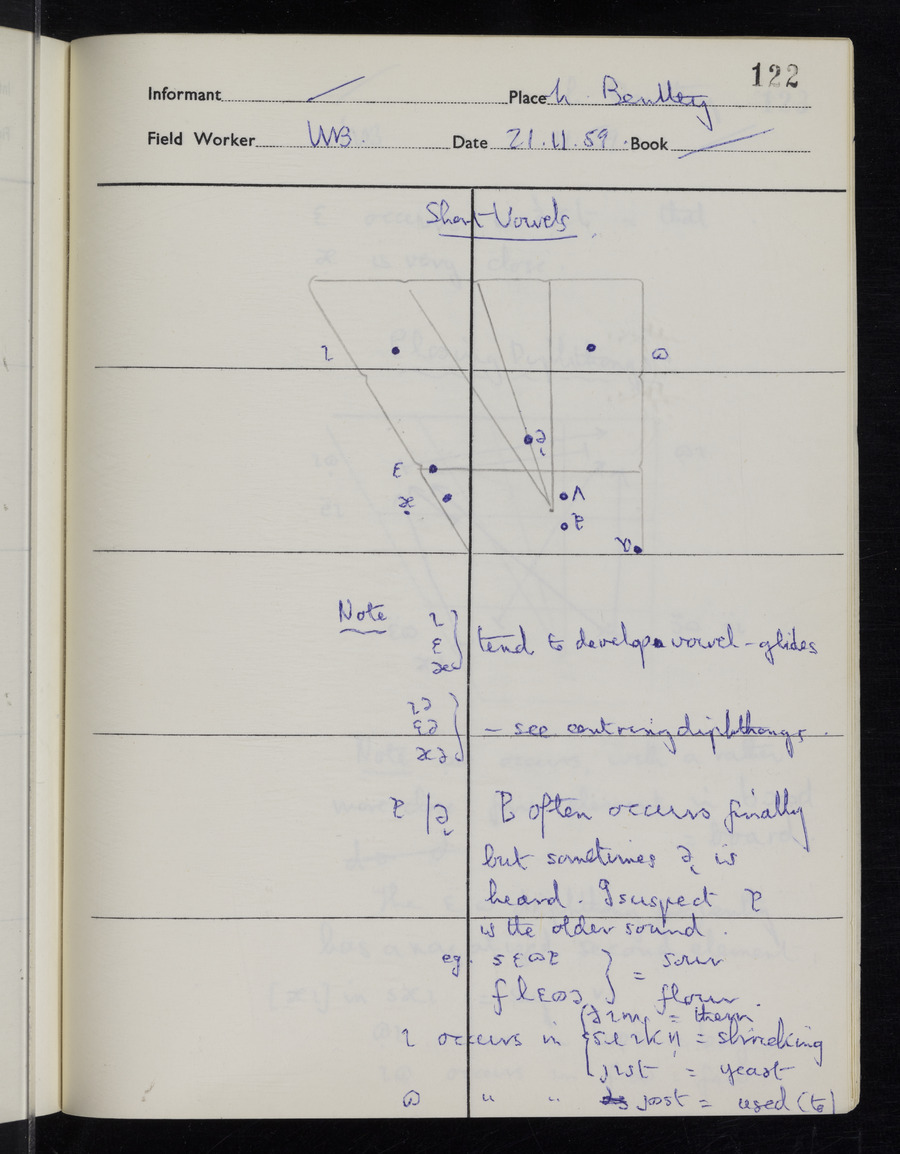 122
Informant Place h. Bentley
Field Worker WB. Date 21.11.59. Book
Short Vowels
ɩ ɷ
ə
ɛ
ʌ
æ
ɐ
ɒ
Note ɩ
ɛ tend to develop vowel-glides
æ
ɩə
ɛə - see centring diphthongs.
æə
ɐ / ə ɐ often occurs finally
but sometimes ə is
heard. I suspect ɐ
is the older sound.
eg. sɛɷɐ = sour
flɛɷə flour.
ðɩm = them
ɩ occurs in = shrieking
jɩst = yeast
ɷ " " jɷst = used (to)